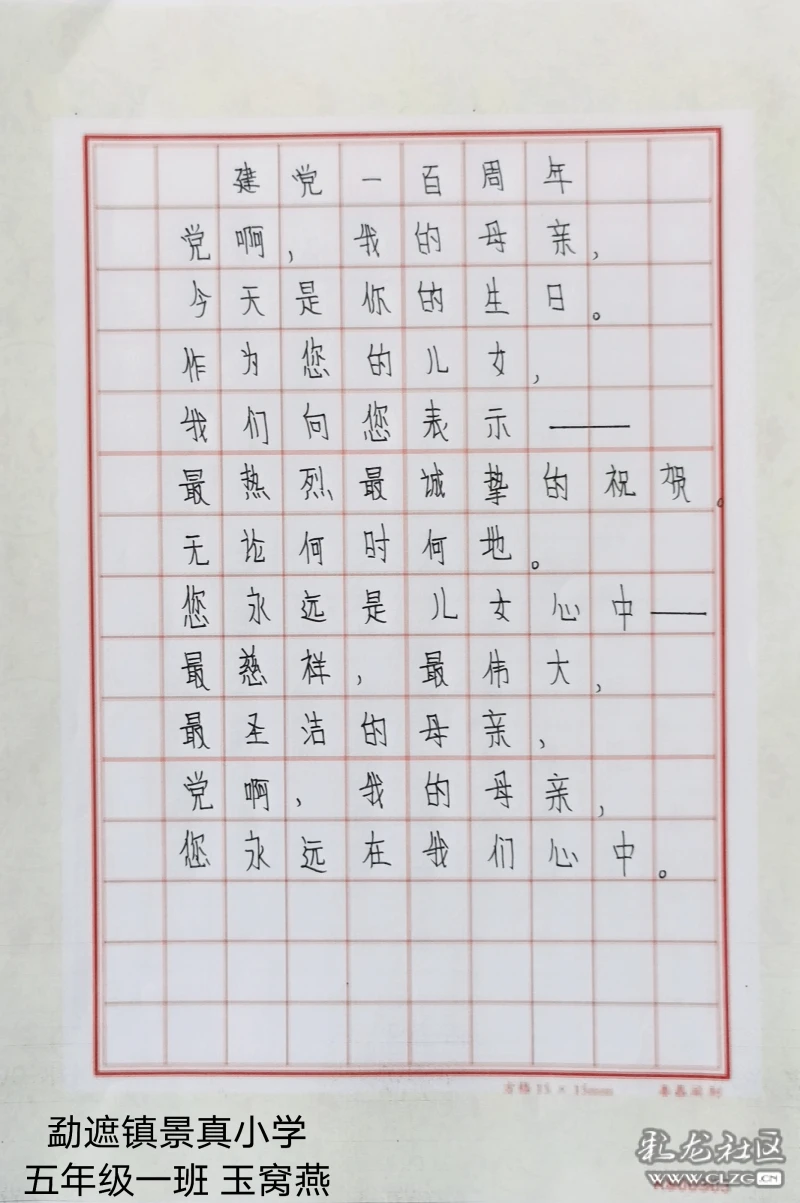 建党一百周年
党啊，我的母亲，
今天是你的生日。
作为您的儿女，
我们向您表示——
最热烈最诚挚的祝贺。
无论何时何地。
您永远是儿女心中——
最慈祥，最伟大，
最圣洁的母亲，
党啊，我的母亲，
您永远在我们心中。
方格15×15mm
勐遮镇景真小学
五年级一班 玉窝燕
彩龙社区
www.CLZG.CN